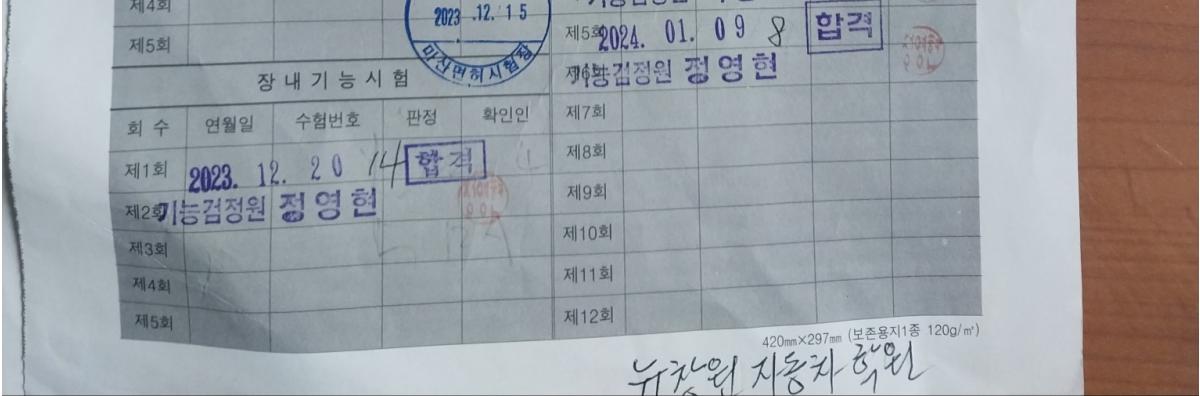 제4회
제5회
2023 .12. 15
마산면허시험장
장내기능시험
회 수 연월일 수험번호 판정 확인인
제1회 2023. 12. 20 14 합격
제2회 기능검정원 정영현
제3회
제4회
제5회
제5회 2024. 01. 09 8 합격
제6회 기능검정원 정영현
제7회
제8회
제9회
제10회
제11회
제12회
420㎜×297㎜ (보존용지1종 120g/㎡)
뉴창원 자동차 학원